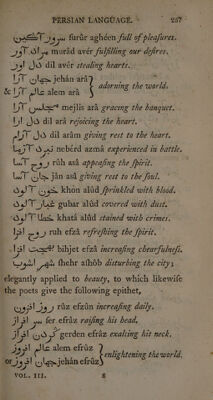 PERSIAN LANGUAGE. 257
سرور آگین surûr agheen full of pleasures.
مراد آور murâd avér fulfilling our desires.
دل اور dil avér stealing hearts.
جهان آرا jehán arâ
& عالم آرا alem arâ } adorning the world.
مجلس آرا mejlis arâ gracing the banquet.
دل آرا dil arâ rejoicing the heart.
دل آرام dil arâm giving rest to the heart.
نبرد آزما neberd azmâ experienced in battle.
روح آسا rûh asâ appeasing the spirit.
جان آسا jân asâ giving rest to the soul.
خون آلود khon alûd sprinkled with blood.
غبار آلود gubar alûd covered with dust.
خطا آلود khatá alûd stained with crimes.
روح افزا ruh efzâ refreshing the spirit.
بهجت افزا bihjet efzâ increasing chearfulness.
شهر اشوب shehr ashôb disturbing the city;
elegantly applied to beauty, to which likewise
the poets give the following epithet,
روز افزون rûz efzûn increasing daily.
سر افراز ser efrâz raising his head.
گردن افراز gerden efrâz exalting his neck.
عالم افروز alem efrûz
or جهان افروز jehán efrûz } enlightening the world.
VOL. III. S